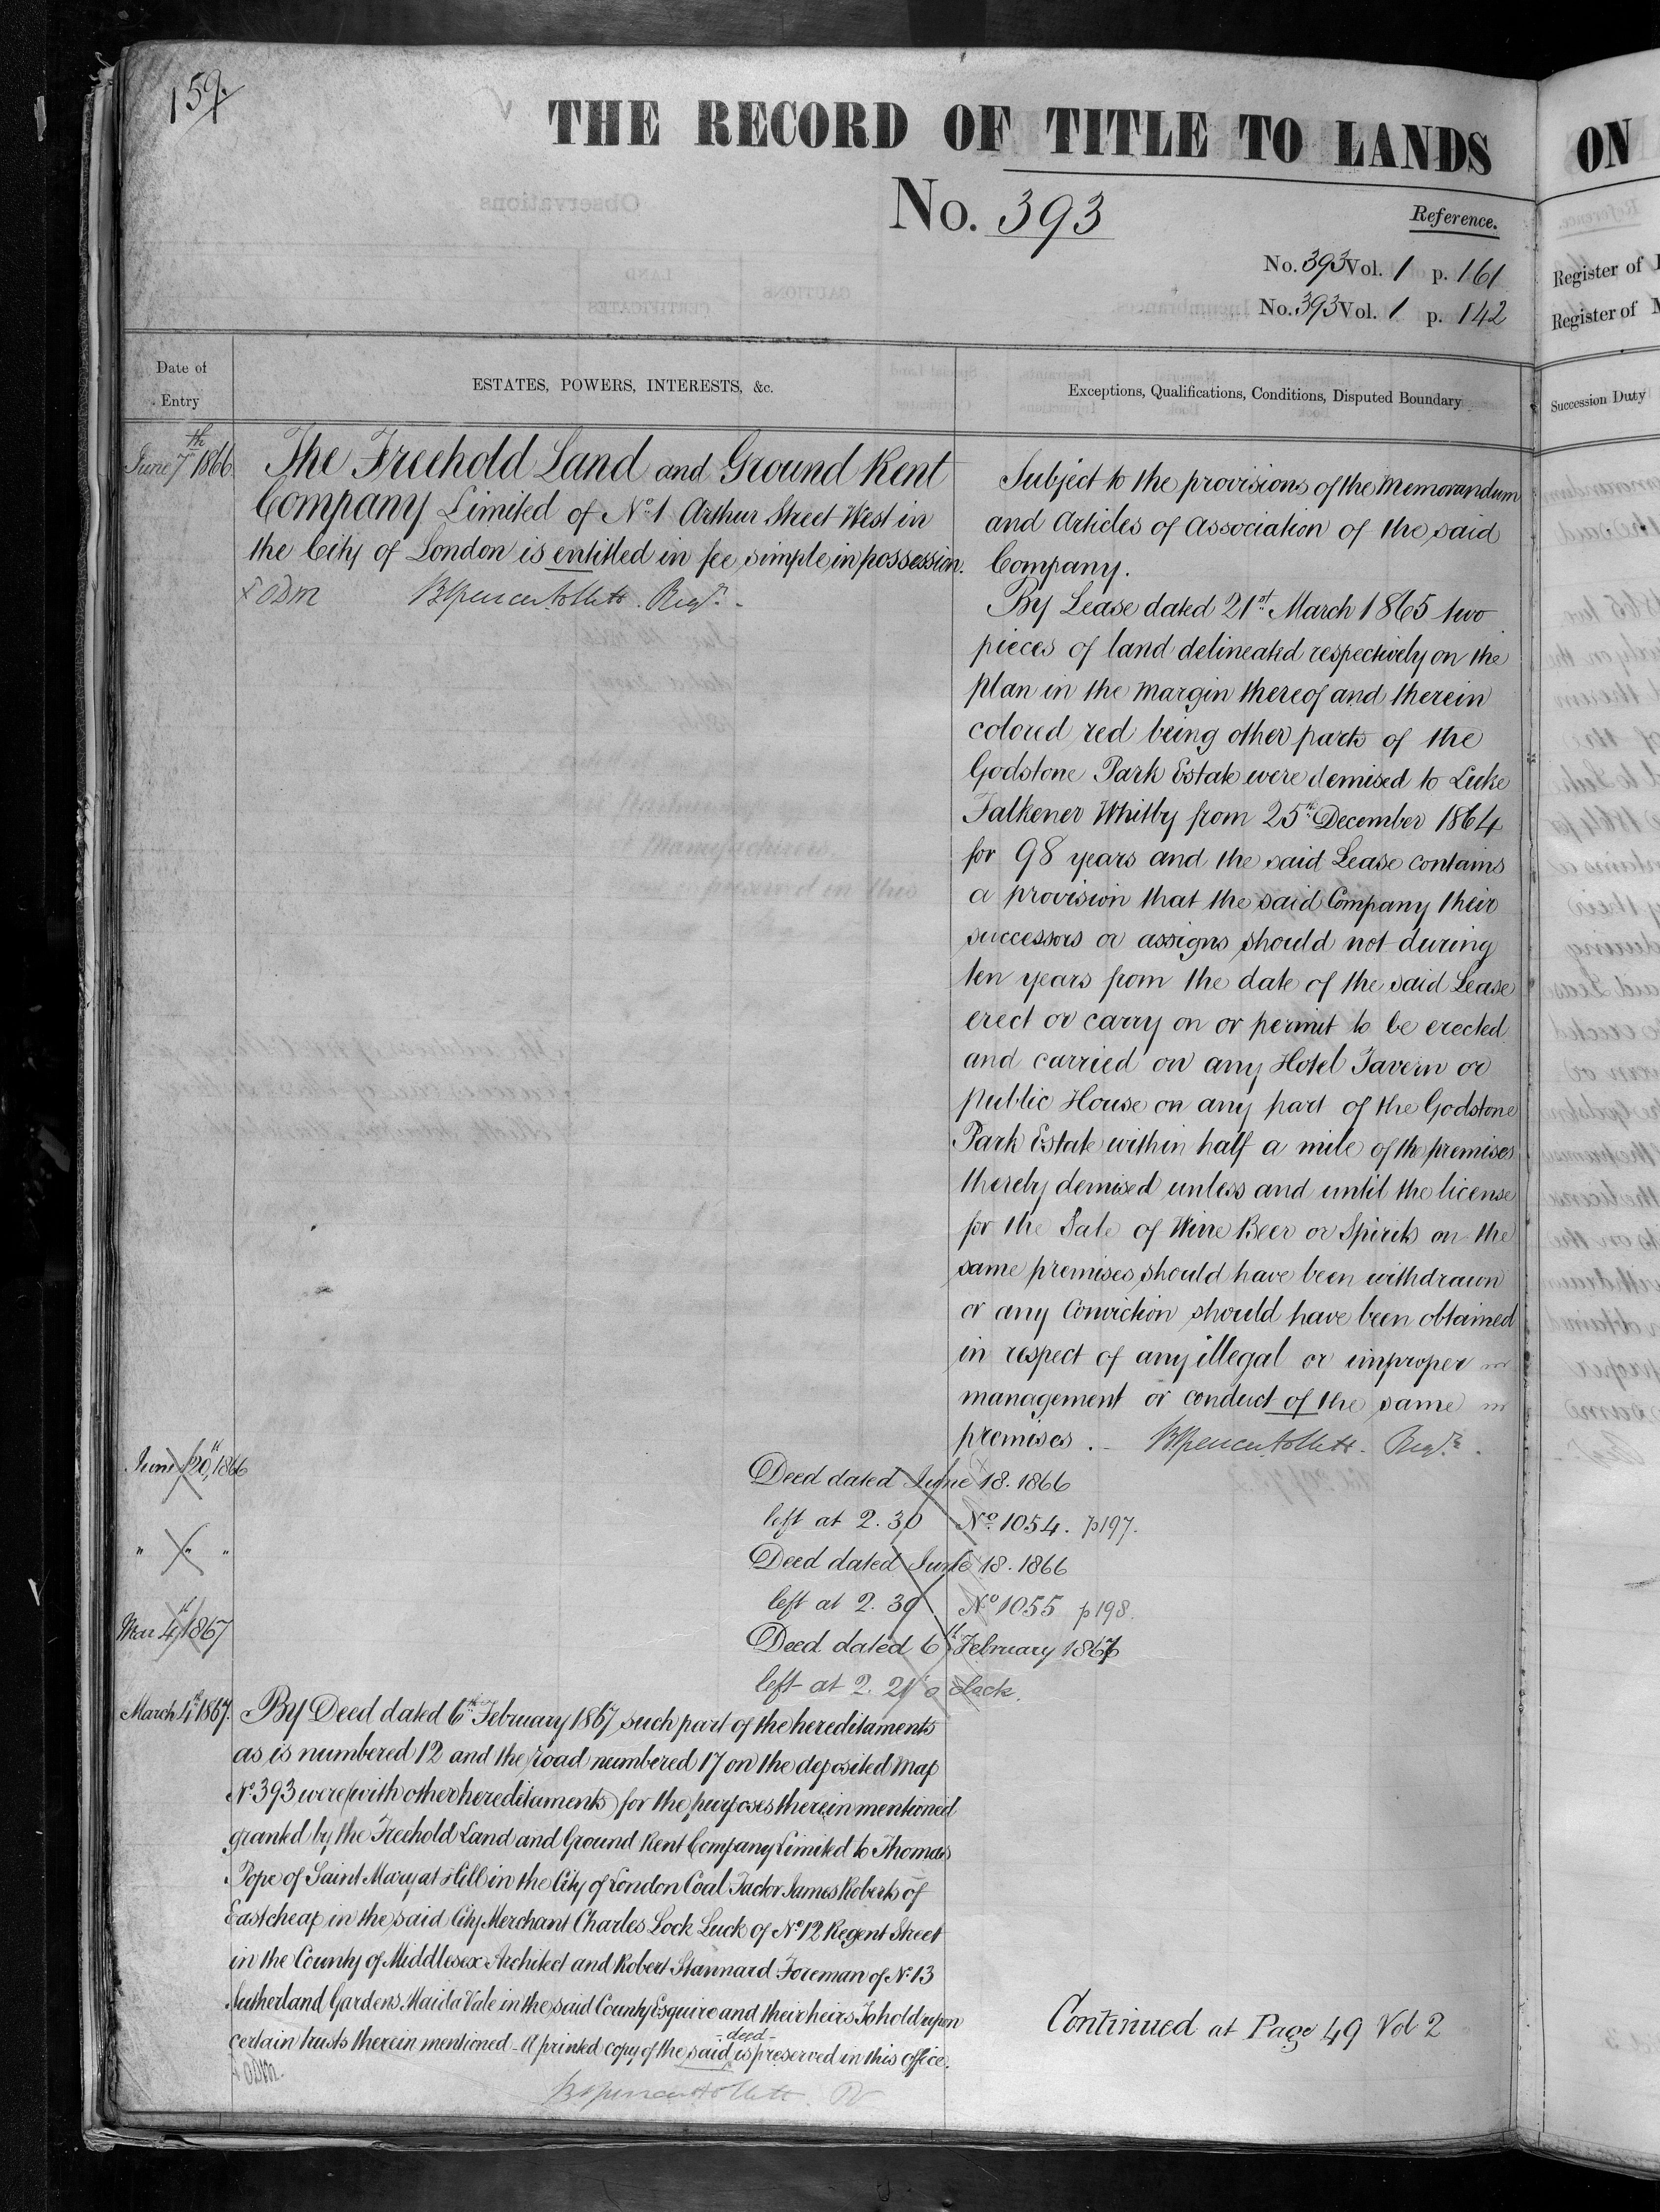 159
THE RECORD OF TITLE TO LANDS
ON
No. 393
Reference.
No. 393 Vol. 1 p. 161
Register of
No. 393 Vol. 1 p. 142
Register of
Date of
Entry
ESTATES, POWERS, INTERESTS, &c.
Exceptions, Qualifications, Conditions, Disputed Boundary
Succession Duty
June 7th 1866
The Freehold Land and Ground Rent
Company Limited of No. 1 Arthur Street West in
the City of London is entitled in fee simple in possession.
Regr.
Subject to the provisions of the Memorandum
and Articles of Association of the said
Company.
By Lease dated 21st March 1865 two
pieces of land delineated respectively on the
plan in the margin thereof and therein
colored red being other parts of the
Godstone Park Estate were demised to Luke
Falkener Whitby from 25th December 1864
for 98 years and the said Lease contains
a provision that the said Company their
successors or assigns should not during
ten years from the date of the said Lease
erect or carry on or permit to be erected
and carried on any Hotel Tavern or
public House on any part of the Godstone
Park Estate within half a mile of the premises
thereby demised unless and until the license
for the Sale of Wine Beer or Spirits on the
same premises should have been withdrawn
or any Conviction should have been obtained
in respect of any illegal or improper
management or conduct of the same
premises. Regr.
June 20th, 1866
Deed dated June 18. 1866
left at 2.30 No. 1054. p197.
" " "
Deed dated June 18. 1866
left at 2.30 No. 1055 p198.
Mar 4th 1867
Deed dated 6th February 1867
left at 2.21 o'clock.
March 4th 1867.
By Deed dated 6th February 1867 such part of the hereditaments
as is numbered 12 and the road numbered 17 on the deposited Map
No. 393 were (with other hereditaments) for the purposes therein mentioned
granted by the Freehold Land and Ground Rent Company Limited to Thomas
Pope of Saint Mary at Hill in the City of London Coal Factor James Roberts of
Eastcheap in the said City Merchant Charles Lock Luck of No. 12 Regent Street
in the County of Middlesex Architect and Robert Stannard Foreman of No. 13
Sutherland Gardens Maida Vale in the said County Esquire and their heirs To hold upon
certain trusts therein mentioned - A printed copy of the said deed is preserved in this office.
Continued at Page 49 Vol 2